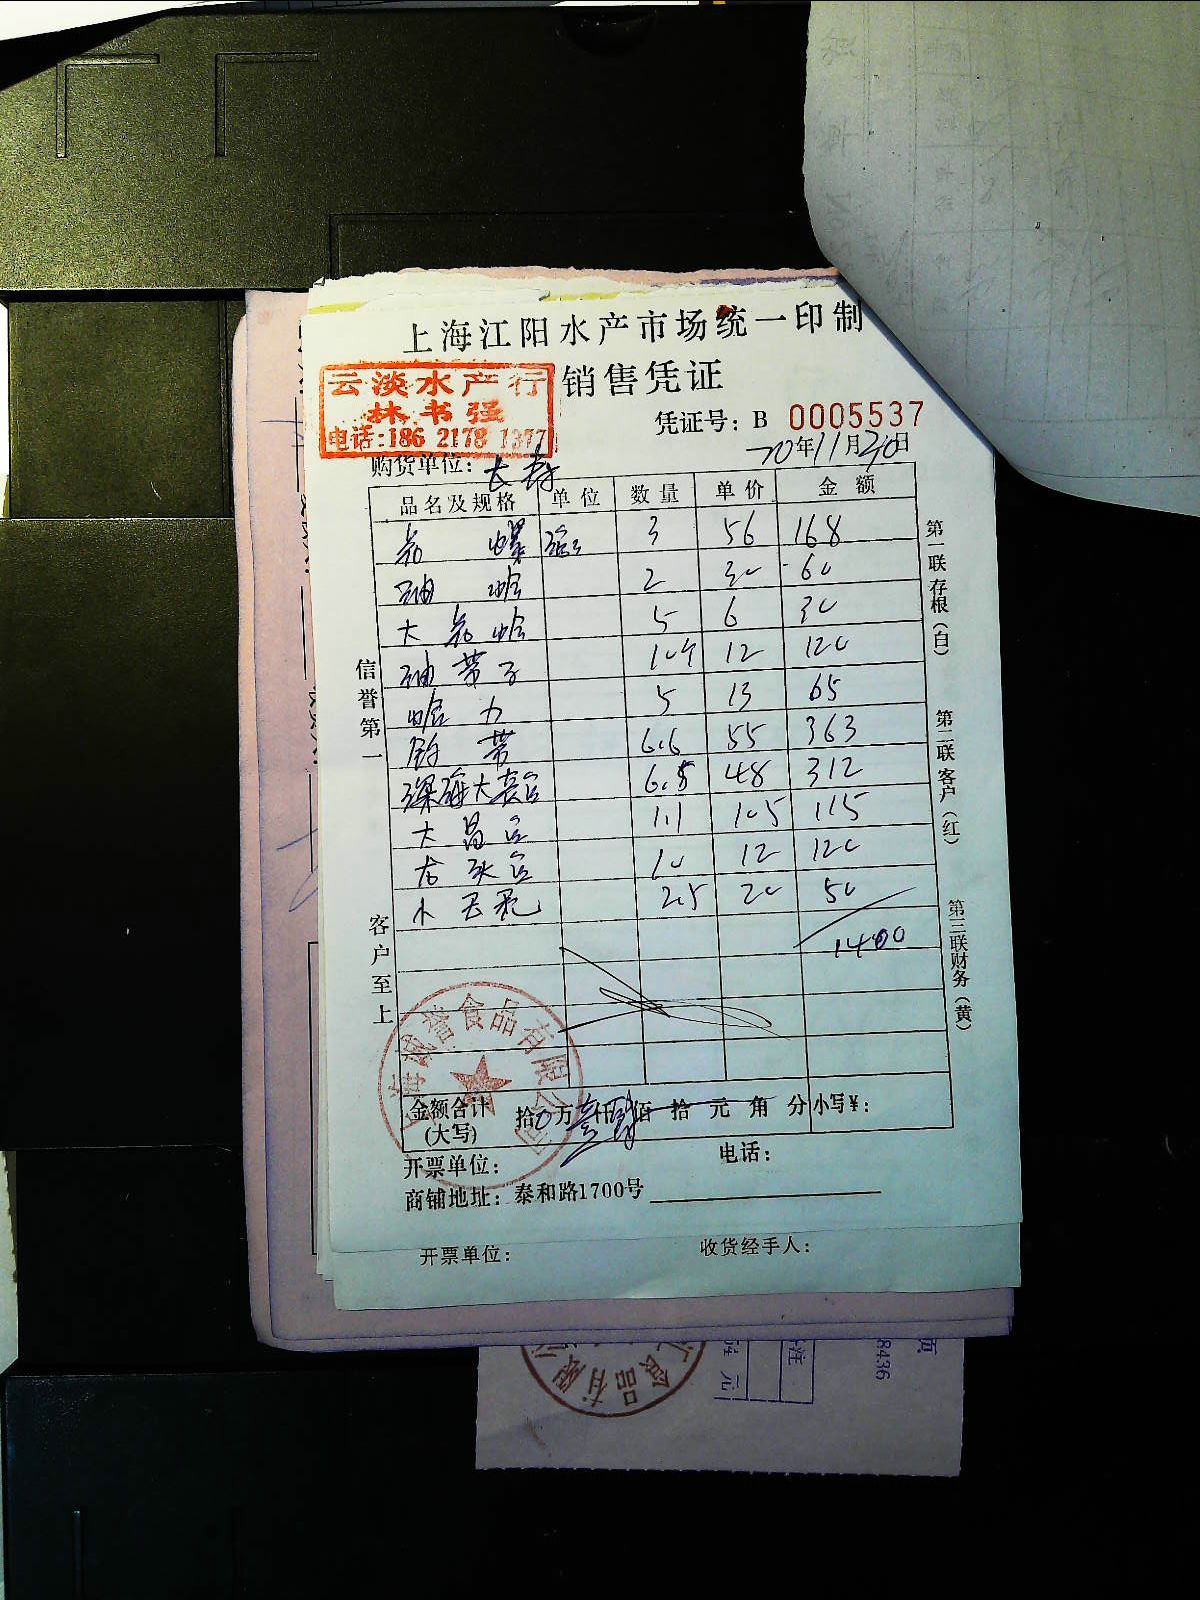 上海江阳水产市场统一印制
销售凭证
云淡水产行
林书强
电话:186 2178 1377
凭证号: B 0005537
20年11月30日
购货单位: 长寿
品名及规格 单位 数量 单价 金额
花螺 3 56 168
油蛤 2 30 60
大花蛤 5 6 30
油带子 10个 12 120
蛤力 5 13 65
钓带 6.6 55 363
深海大黄鱼 6.5 48 312
大昌鱼 1.1 105 115
龙头鱼 10 12 120
2.5 20 50
1400
信誉第一
客户至上
第一联存根(白)
第二联客户(红)
第三联财务(黄)
誉食品有限公司
金额合计(大写) 拾0万壹仟肆佰拾元角分 小写¥:
开票单位: 电话:
商铺地址: 泰和路1700号
开票单位: 收货经手人:
食品有限
元
注
8436
页